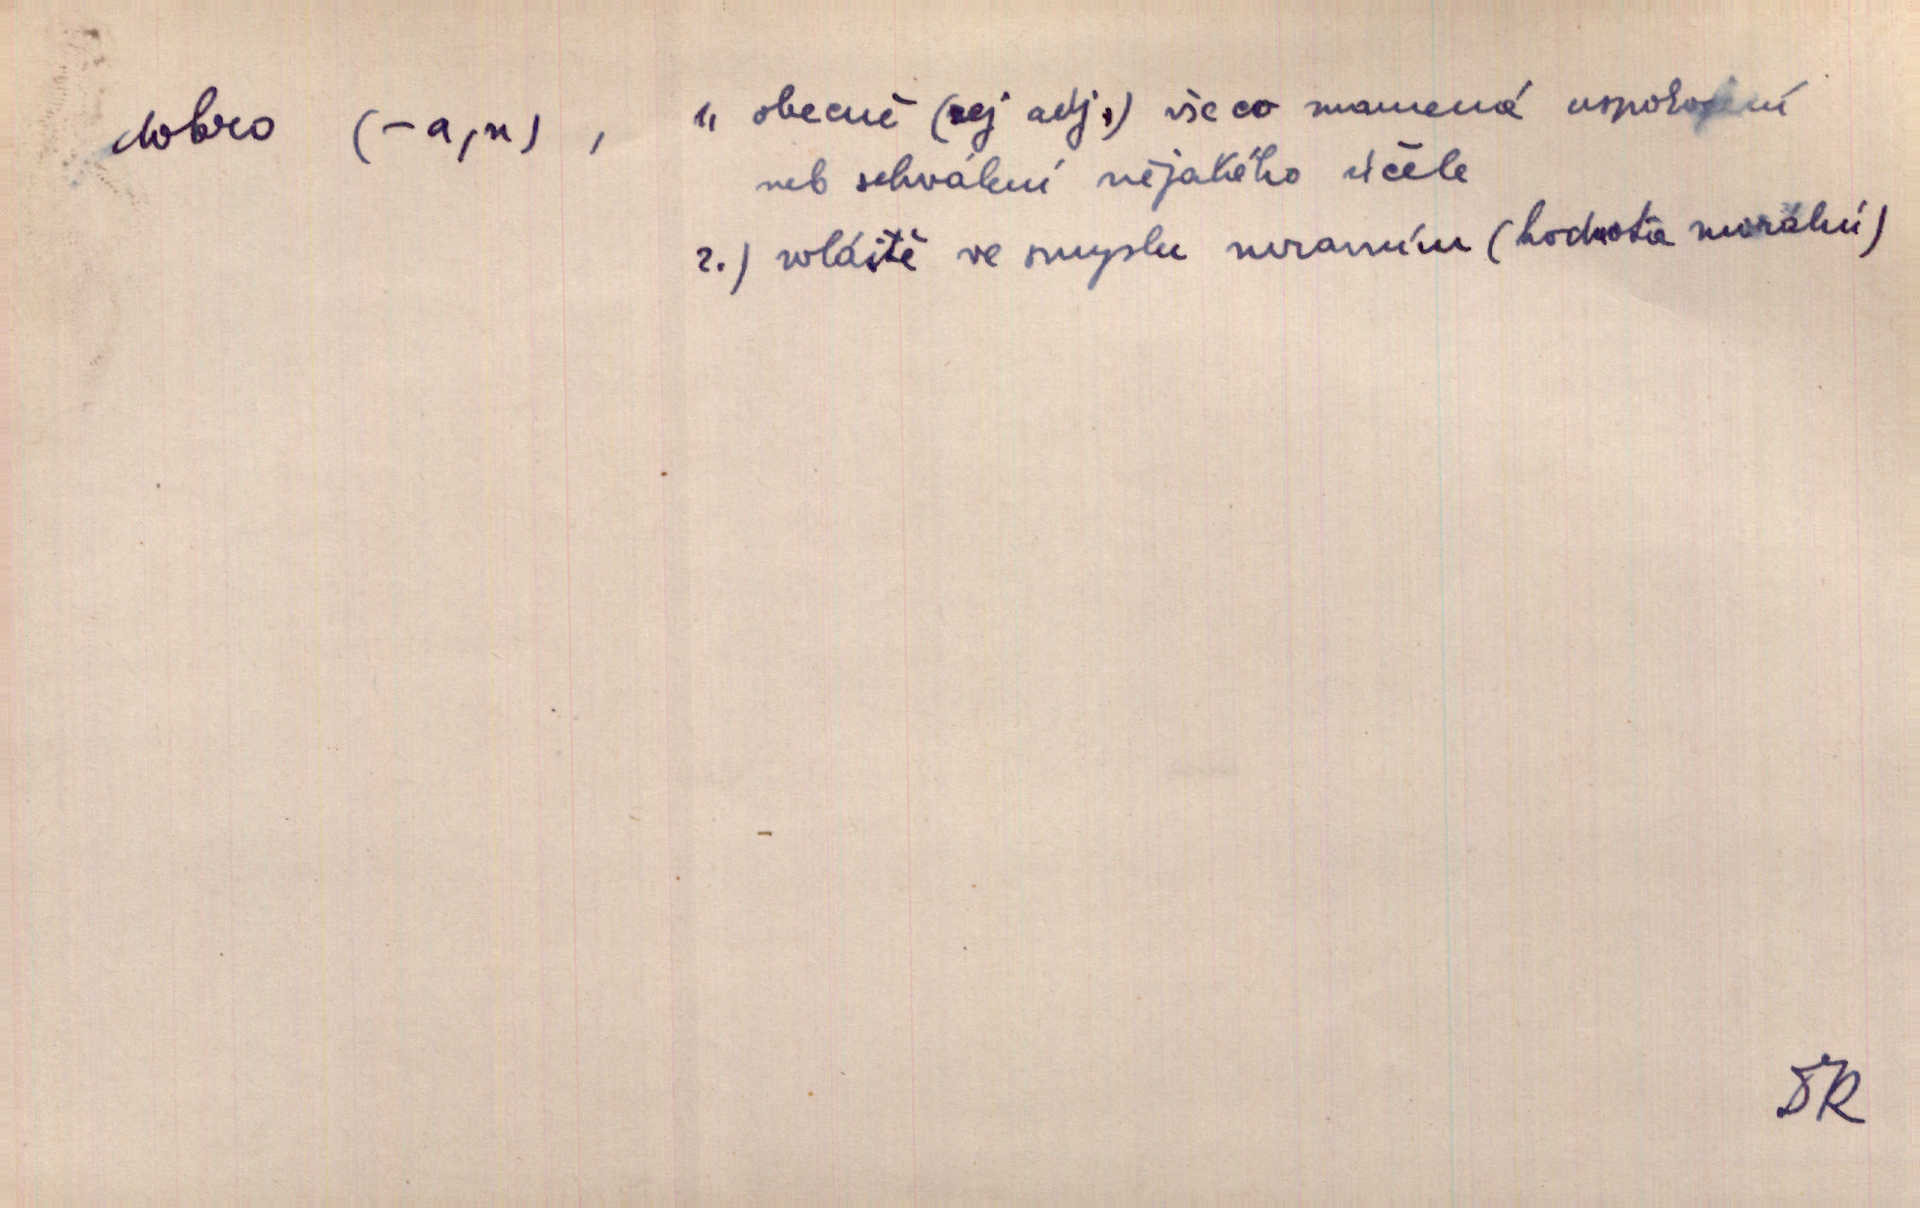 dobro (-a, n), 1, obecně (nej adj.) vše co znamená uspokojení
neb schválení nějakého účele
2.) zvláště ve smyslu mravním (hodnota morální)
ŠR